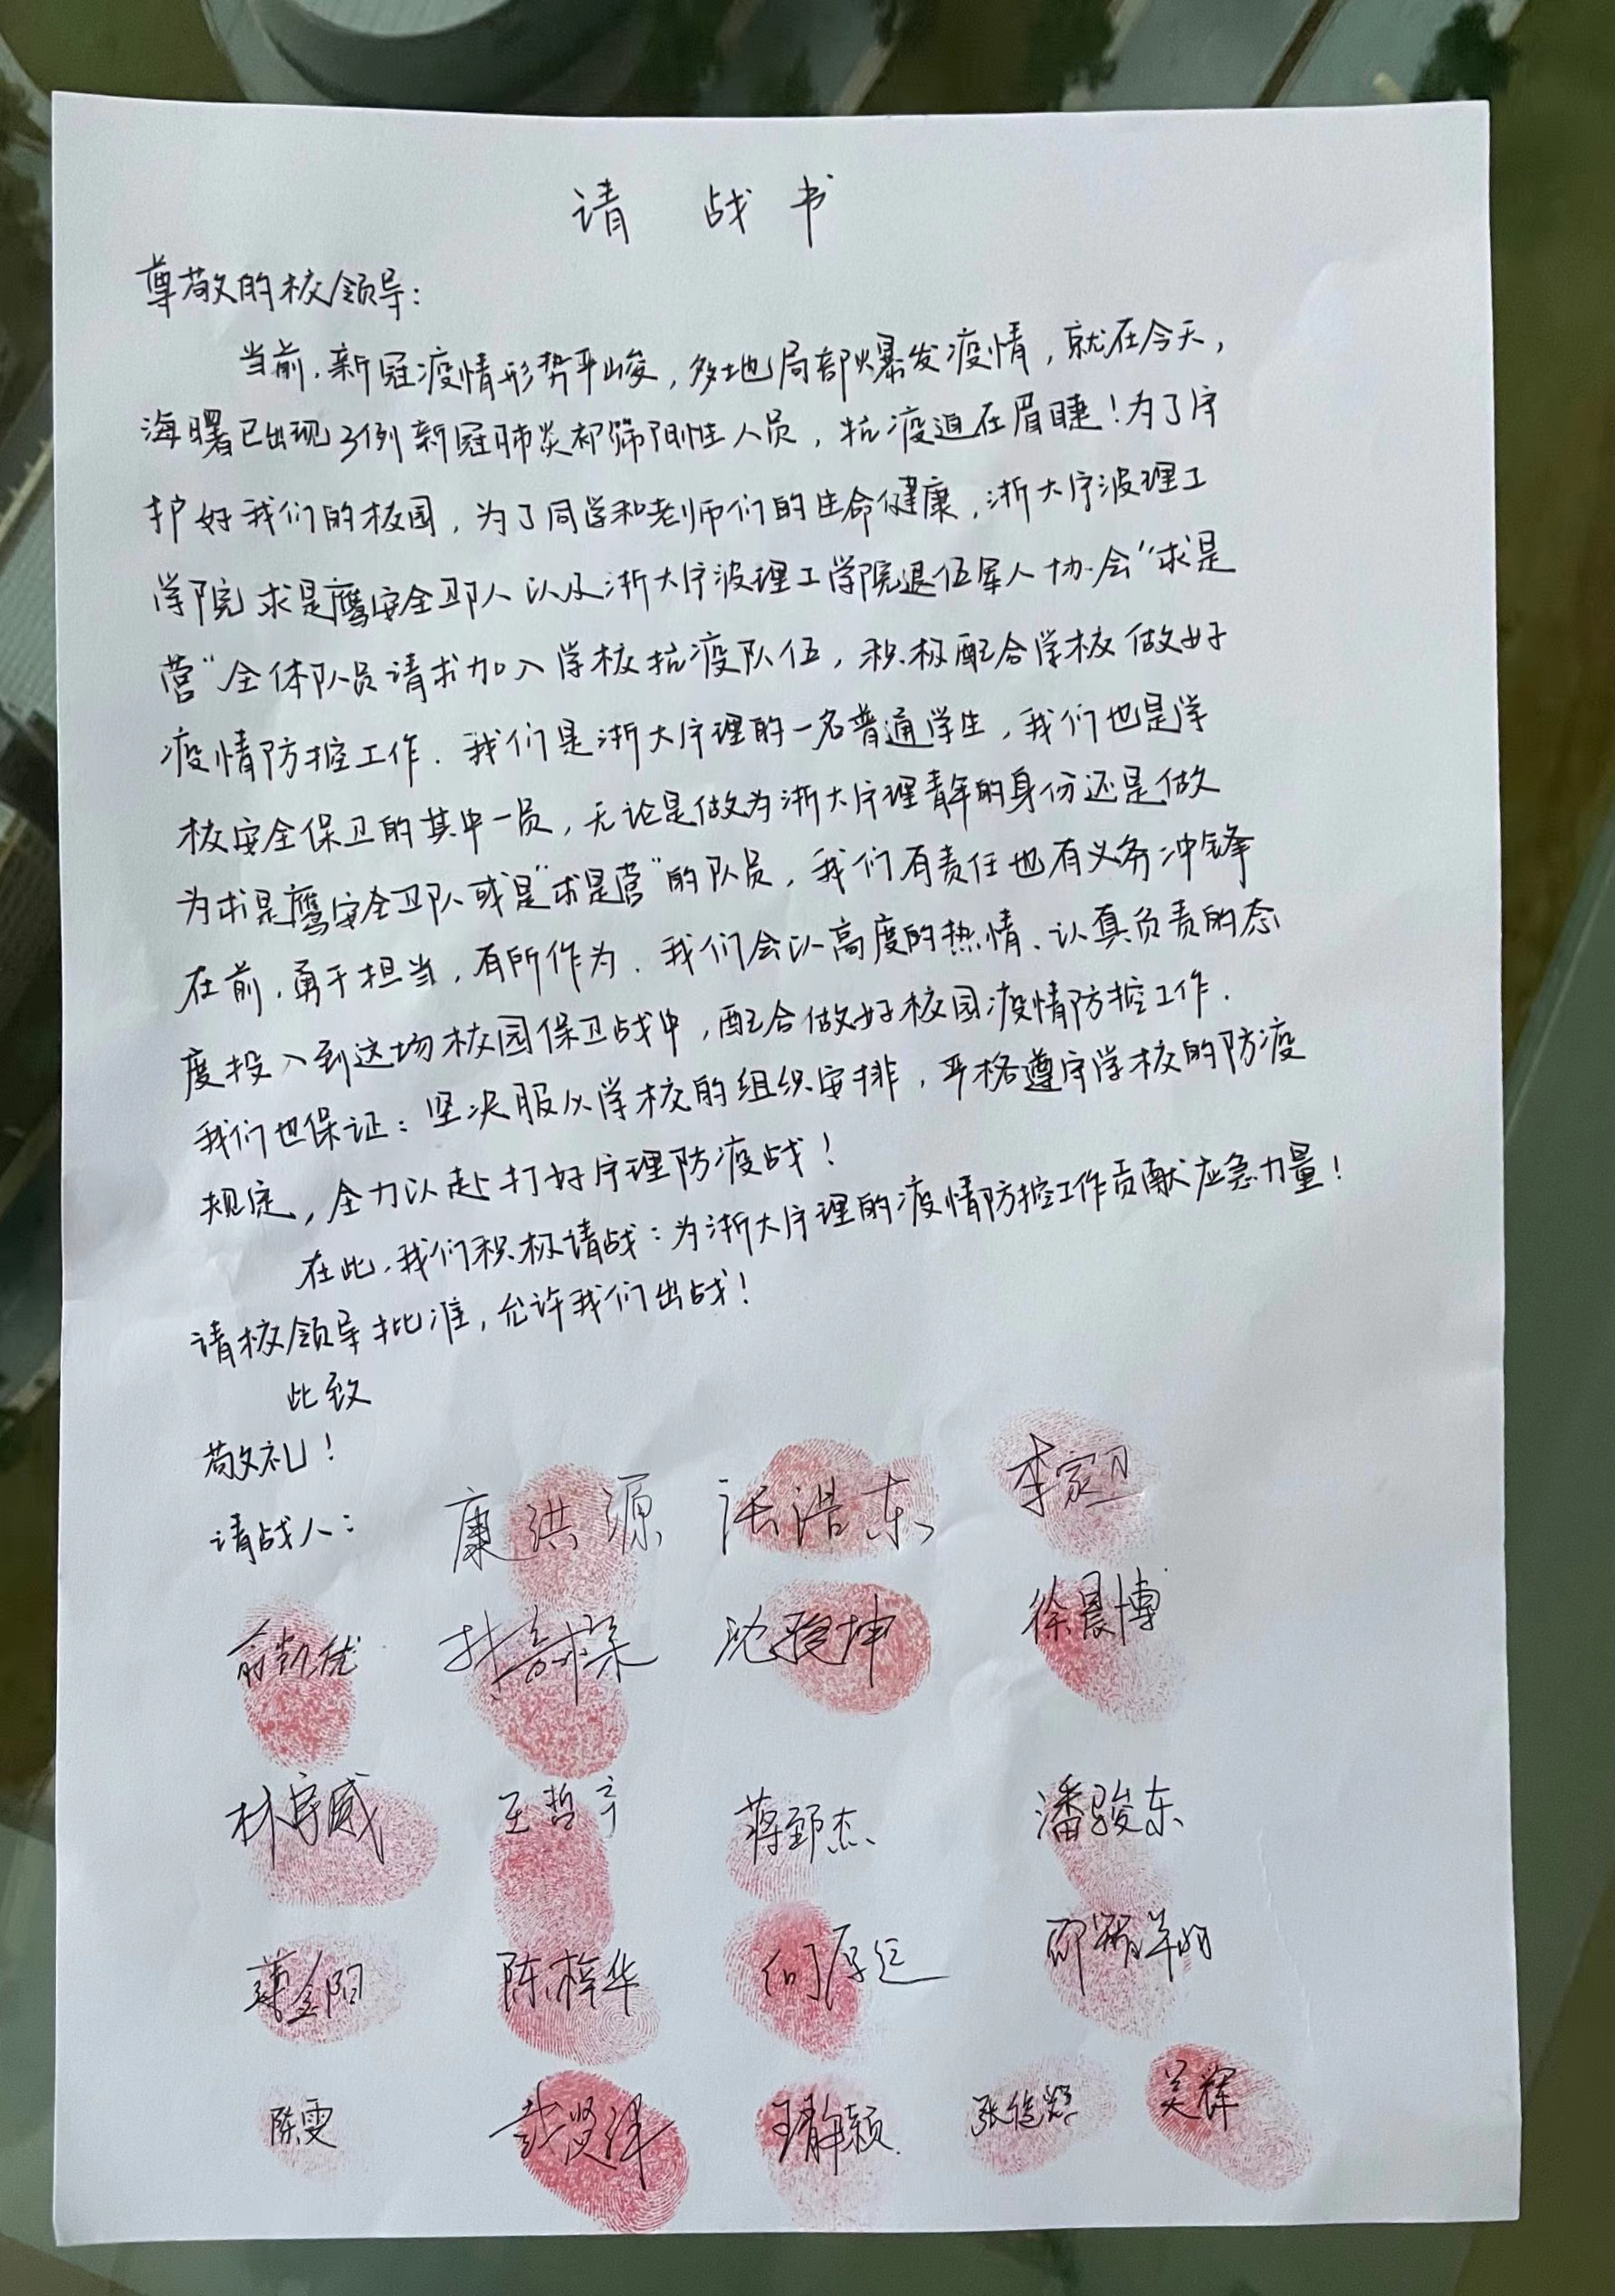 请战书
尊敬的校领导：
当前，新冠疫情形势严峻，多地局部爆发疫情，就在今天，
海曙已出现3例新冠肺炎初筛阳性人员，抗疫迫在眉睫！为了守
护好我们的校园，为了同学和老师们的生命健康，浙大宁波理工
学院求是鹰安全卫队以及浙大宁波理工学院退伍军人协会“求是
营”全体队员请求加入学校抗疫队伍，积极配合学校做好
疫情防控工作．我们是浙大宁理的一名普通学生，我们也是学
校安全保卫的其中一员，无论是做为浙大宁理青年的身份还是做
为求是鹰安全卫队或是“求是营”的队员，我们有责任也有义务冲锋
在前，勇于担当，有所作为．我们会以高度的热情、认真负责的态
度投入到这场校园保卫战中，配合做好校园疫情防控工作．
我们也保证：坚决服从学校的组织安排，严格遵守学校的防疫
规定，全力以赴打好宁理防疫战！
在此，我们积极请战：为浙大宁理的疫情防控工作贡献应急力量！
请校领导批准，允许我们出战！
此致
敬礼！
请战人：康洪源 汪浩东 李家卫
俞凯优 沈骏坤 徐晨博
林宇威 王哲宇 蒋郅杰 潘骏东
陈梓华
陈雯 王静颖 张俊辉 吴辉